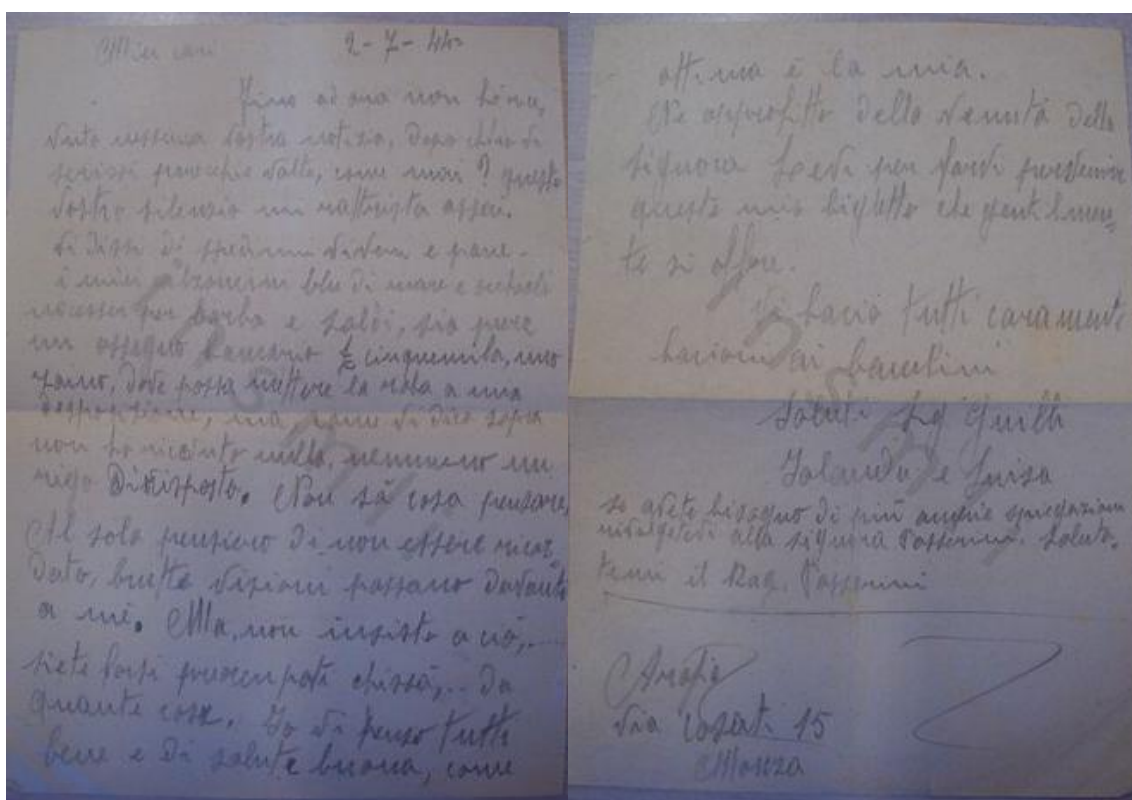 Miei cari 2-7-44
Fino ad ora non ho rice,
vuto nessuna vostra notizia, dopo che vi
scrissi parecchie volte, come mai? questo
vostro silenzio mi rattrista assai.
Vi dissi di spedirmi viveri e pane.
i miei calzoncini blu di mare e sandali
necesser per barba e soldi, sia pure
un assegno bancario £ cinquemila, uno
zaino, dove possa mettere la roba a mia
disposizione, ma, come vi dico sopra
non ho ricevuto nulla, nemmeno un
rigo di risposta. Non sà cosa pensare,
Al solo pensiero di non essere ricor
dato, brutte visioni passano davanti
a me. Ma, non insisto a ciò,....
siete forse preoccupati chissà,.. da
quante cose. Io vi penso tutti
bene e di salute buona, come
ottima è la mia.
Ne approfitto della venuta della
signora Levi per farvi pervenire
questo mio biglietto che gentilmen=
te si offre.
Vi bacio tutti caramente
bacioni ai bambini
Saluti Sig
Iolanda e Luisa
se avete bisogno di più ampie spiegazioni
rivolgetevi alla signora Passerini. Saluta,
temi il Rag. Passerini
via Cosati 15
Monza